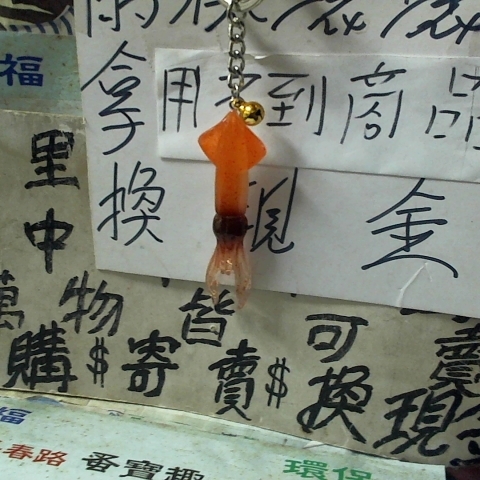 福
拿 用不到商品
換 現金
里
中
萬物皆可賣
購$寄賣$換現金
福
春路 蚤寶趣 環保